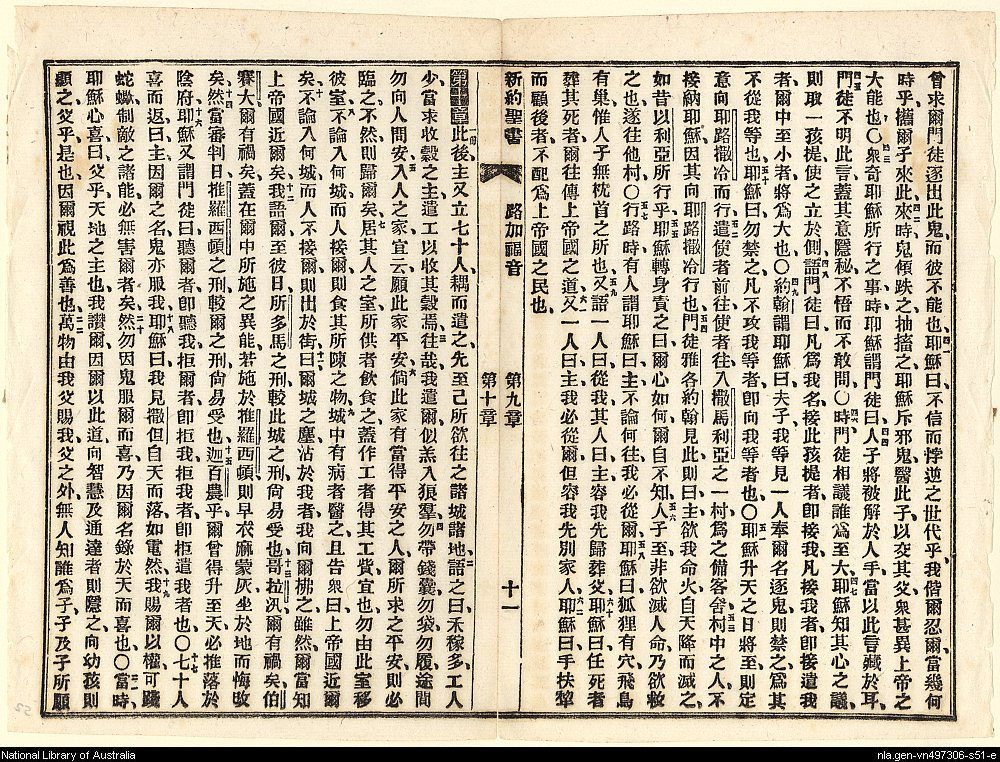 曾求爾門徒逐出此鬼、而彼不能也、耶穌曰、不信而悖逆之世代乎、我偕爾忍爾當幾何
時乎、攜爾子來此、來時鬼傾跌之、抽搐之、耶穌斥邪鬼、醫此子以交其父、衆甚異上帝之
大能也〇衆奇耶穌所行之事時、耶穌謂門徒曰、人子將被解於人手、當以此言藏於耳、
門徒不明此言、蓋其意隱秘不悟、而不敢問〇時門徒相議誰爲至大、耶穌知其心之議、
則取一孩提、使之立於側、語門徒曰、凡爲我名接此孩提者、卽接我、凡接我者、卽接遣我
者、爾中至小者、將爲大也〇約翰謂耶穌曰、夫子、我等見一人奉爾名逐鬼、則禁之、爲其
不從我等也、耶穌曰、勿禁之、凡不攻我等者、卽向我等者也〇耶穌升天之日將至、則定
意向耶路撒冷而行、遣使者前往、使者往入撒馬利亞之一村、爲之備客舍、村中之人不
接納耶穌、因其向耶路撒冷行也、門徒雅各約翰見此、則曰、主欲我命火自天降而滅之、
如昔以利亞所行乎、耶穌轉身責之曰、爾心如何、爾自不知、人子至非欲滅人命、乃欲救
之也、遂往他村〇行路時、有人謂耶穌曰、主不論何往、我必從爾、耶穌曰、狐狸有穴、飛鳥
有巢、惟人子無枕首之所也、又語一人曰、從我、其人曰、主容我先歸葬父、耶穌曰、任死者
葬其死者、爾往傳上帝國之道、又一人曰、主、我必從爾、但容我先別家人、耶穌曰、手扶犂
而顧後者、不配爲上帝國之民也、
新約聖書 路加福音 第九章 第十章 十一
第十章此後主又立七十人、耦而遣之、先至己所欲往之諸城諸地、語之曰、禾稼多、工人
少、當求收穀之主、遣工以收其穀焉、往哉、我遣爾似羔入狼羣、勿帶錢囊、勿袋、勿履、途間
勿向人問安、入人之家、宜云、願此家平安、倘此家有當得平安之人、爾所求之平安、則必
臨之、不然則歸爾矣、居其人之室、所供者飲食之、蓋作工者得其工貲、宜也、勿由此室移
彼室、不論入何城而人接爾、則食其所陳之物、城中有病者醫之、且告衆曰、上帝國近爾
矣、不論入何城而人不接爾、則出於街曰、爾城之塵沾於我者、我向爾拂之、雖然、爾當知
上帝國近爾矣、我語爾、至彼日、所多馬之刑較此城之刑尙易受也、哥拉汛、爾有禍矣、伯
賽大、爾有禍矣、蓋在爾中所施之異能、若施於推羅西頓、則早衣麻蒙灰、坐於地而悔改
矣、然當審判日、推羅西頓之刑較爾之刑、尙易受也、迦百農乎、爾曾得升至天、必推落於
陰府、耶穌又謂門徒曰、聽爾者卽聽我、拒爾者卽拒我、拒我者卽拒遣我者也〇七十人
喜而返曰、主、因爾之名、鬼亦服我、耶穌曰、我見撒但自天而落如電然、我賜爾以權可踐
蛇蠍、制敵之諸能、必無害爾者矣、然勿因鬼服爾而喜、乃因爾名錄於天而喜也〇當時
耶穌心喜曰、父乎、天地之主也、我讚爾、因爾以此道、向智慧及通達者則隱之、向幼孩則
顯之、父乎、是也、因爾視此爲善也、萬物由我父賜我、父之外、無人知誰爲子、子及子所願
National Library of Australia
nla.gen-vn497306-s51-e